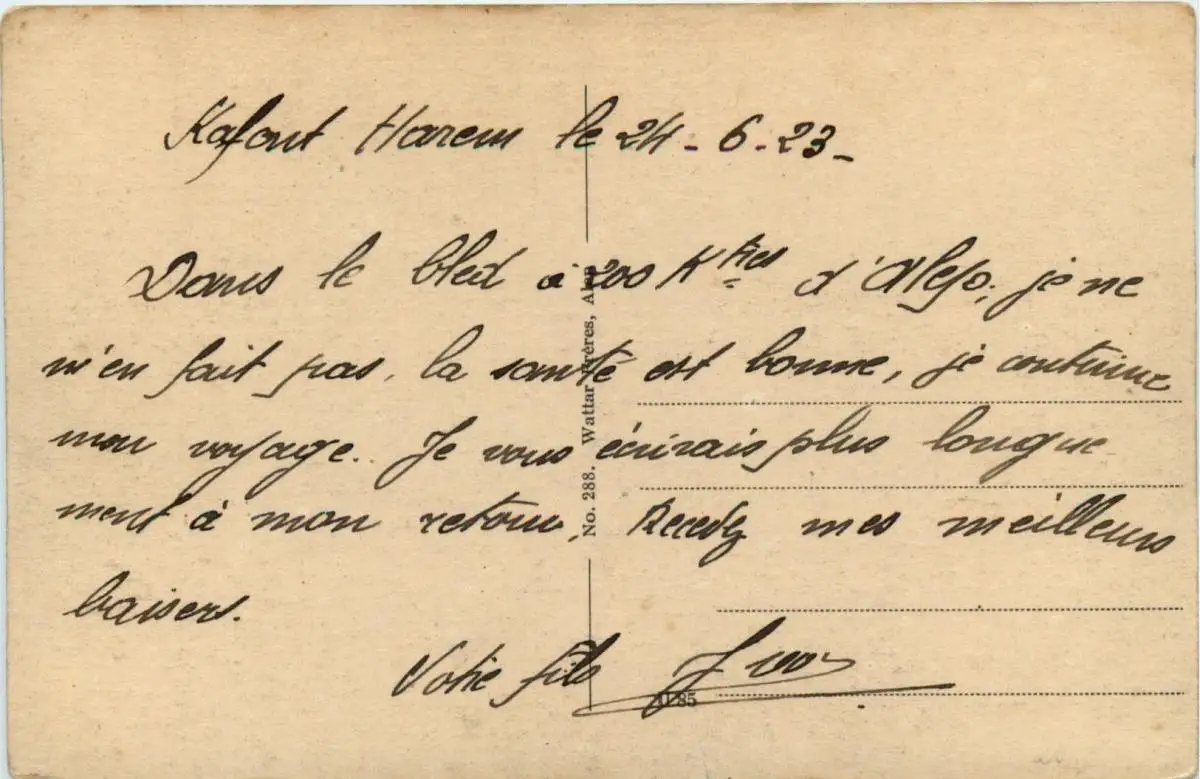 Kafont Harem le 24-6-23-
Dans le bled à 200 K tres d'Alep, je ne
m'en fait pas, la santé est bonne, je continue
mon voyage. Je vous écrirais plus longue
ment à mon retour, Recevez mes meilleurs
baisers.
Votre fils
No. 288. Wattar Frères, Alep